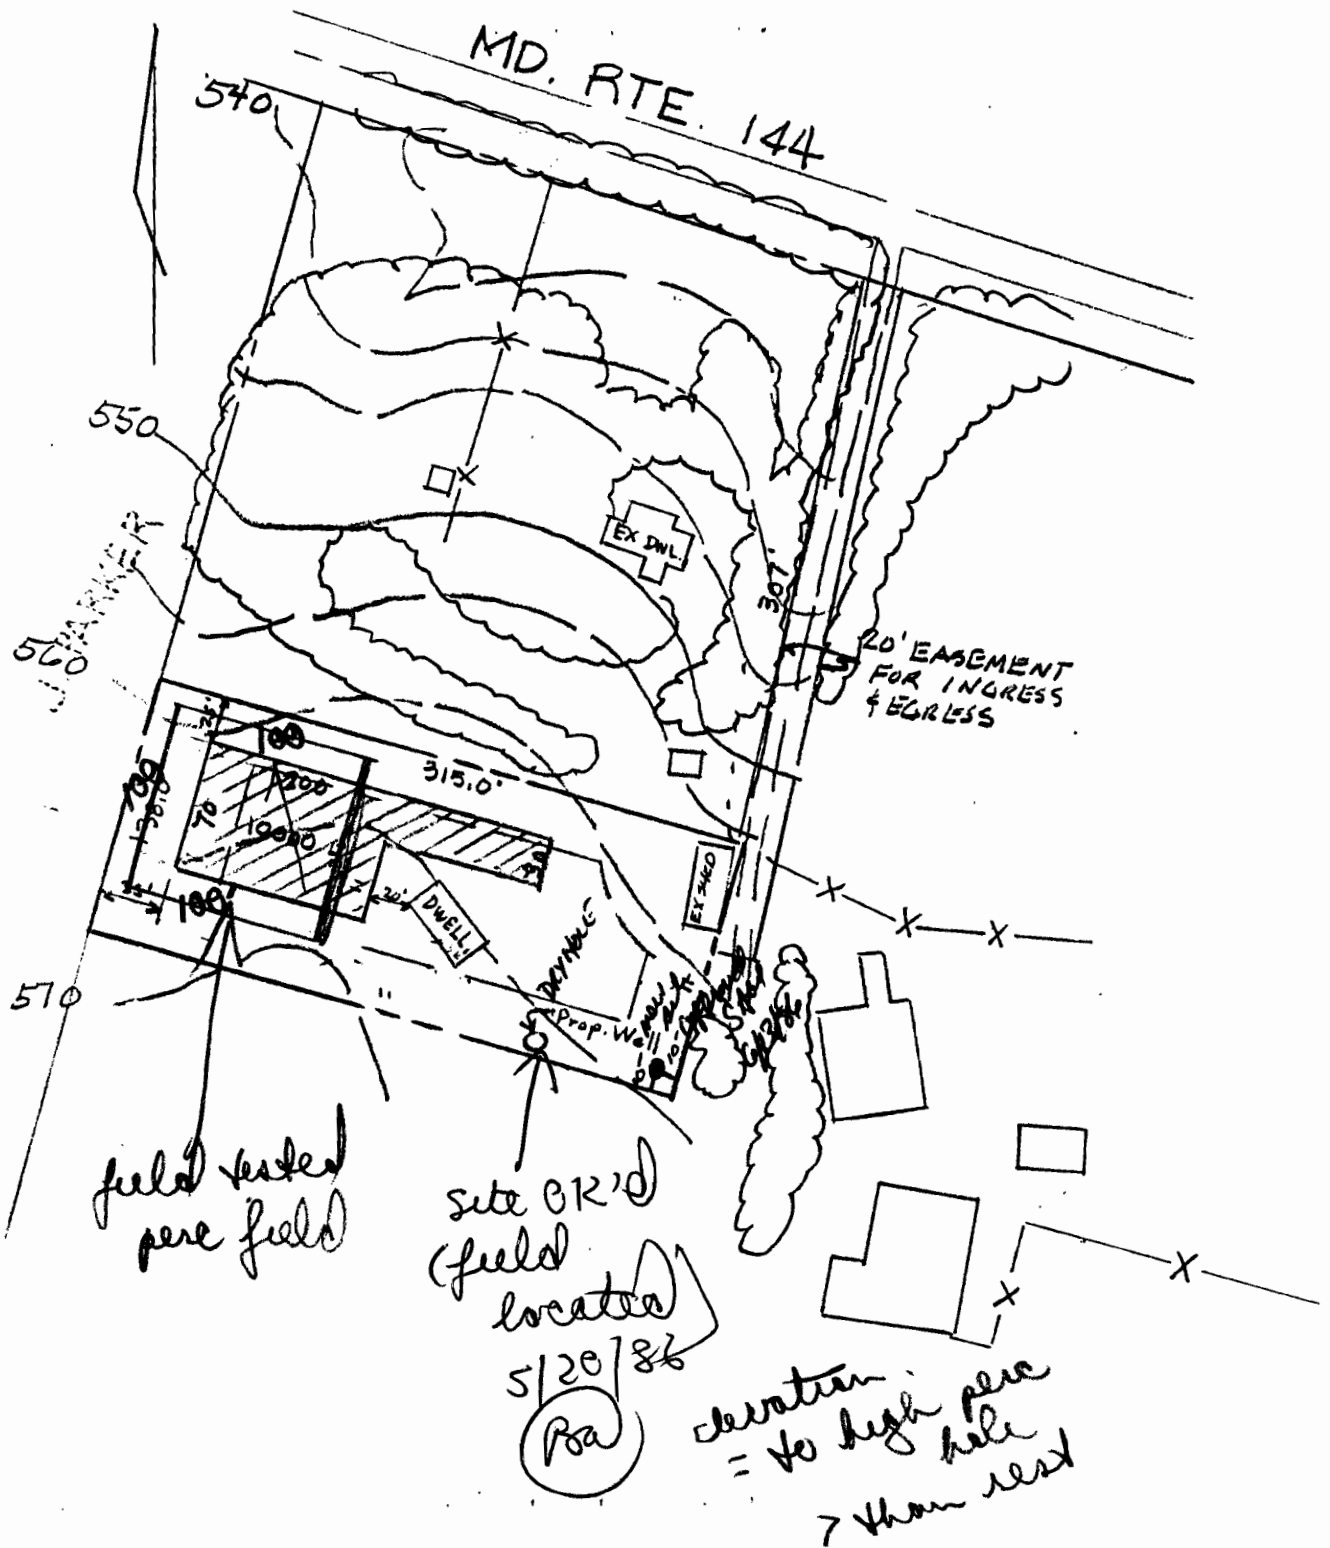 MD. RTE. 144
540
550
EX DWL.
307'
J. PARKER
560
20' EASEMENT
FOR INGRESS
& EGRESS
25'
315.0'
100
130.0
200
70
10000
100'
20'
DWELL.
EX SHED
DRY HOLE
510
Prop. Well
10'
field tested
perc field
site OK'd
(field
located)
5/20/86
BA
elevation
= to high perc
hole
> than rest